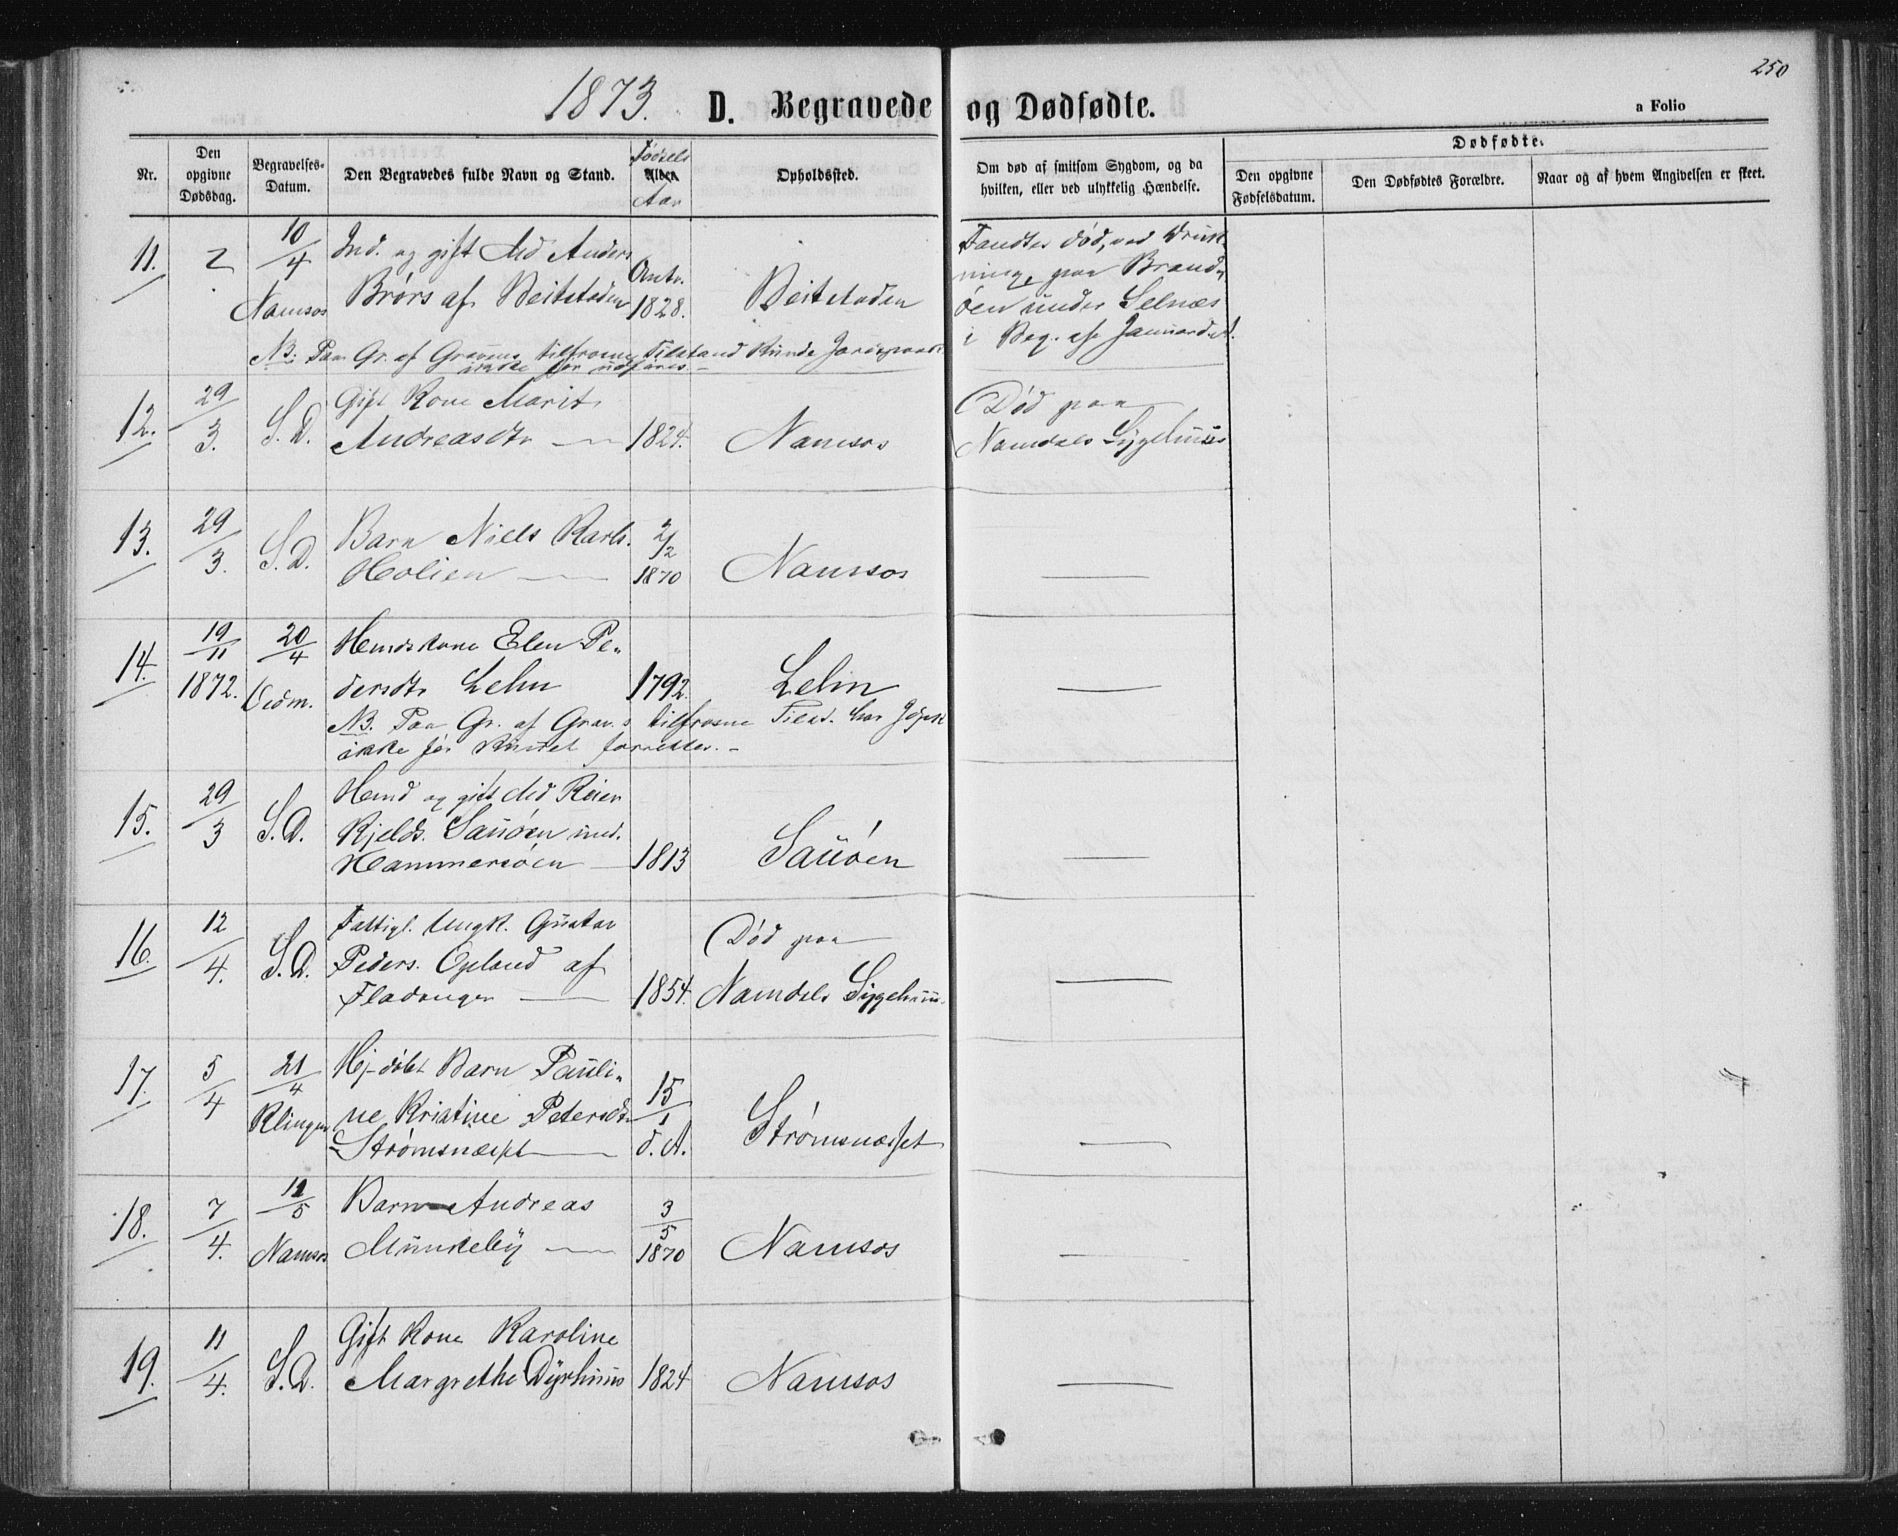 250
1873. D. Begravede og Dødfødte.
a Folio
Nr.
Den opgivne Dødsdag.
Begravelses-Datum.
Den Begravedes fulde Navn og Stand.
Fødsels Alder. Aar
Opholdssted.
Om død af smitsom Sygdom, og da hvilken, eller ved ulykkelig Hændelse.
Dødfødte.
Den opgivne Fødselsdatum.
Den Dødfødtes Forældre.
Naar og af hvem Angivelsen er skeet.
11. 2 10/4 Ind. og gift Md Anders Omtr. Fandtes død, ved Druk
Namsos Brørs af Beitstaden 1828. Beitstaden ning, paa Brand-
øen under Selnæs
i Beg. af Januar
NB: Paa Gr. af Gravens tilfrosne Tilstand kunde
ikke før udføres.
12. 29/3. S.D. Gift Kone Marit Død paa
Andreasdtr 1824. Namsos Namdals Sygehuus
13. 29/3. S.D. Barn Niels Karls. 2/2
Holien 1870 Namsos
14. 19/11 20/4 Kone Elen Pe-
1872. Vedm. dersdtr Lehn 1792. Lehn
NB. Paa Gr. af Grav.s tilfrosne har
ikke før kunnet forrettes.
15. 29/3 S.D. og gift Md Reier
Kjelds. Sauøen ind.
Hammersøen 1813 Sauøen
16. 12/4. S.D. Fattigl. Ungk. Gustav Død paa
Peders. Opland af
Fladanger 1854. Namdals Sygehuus
17. 5/4 21/4 Hj-døbt Barn Pauli- 15/1
Klingen ne Kristine Petersdtr
Strømsnæsset d.A. Strømsnæsset
18. 7/4. 12/5 Barn Andreas 3/5
Namsos Munkeby 1870 Namsos
19. 11/4. S.D. Gift Kone Karoline
Margrethe Dyrhuus 1824 Namsos